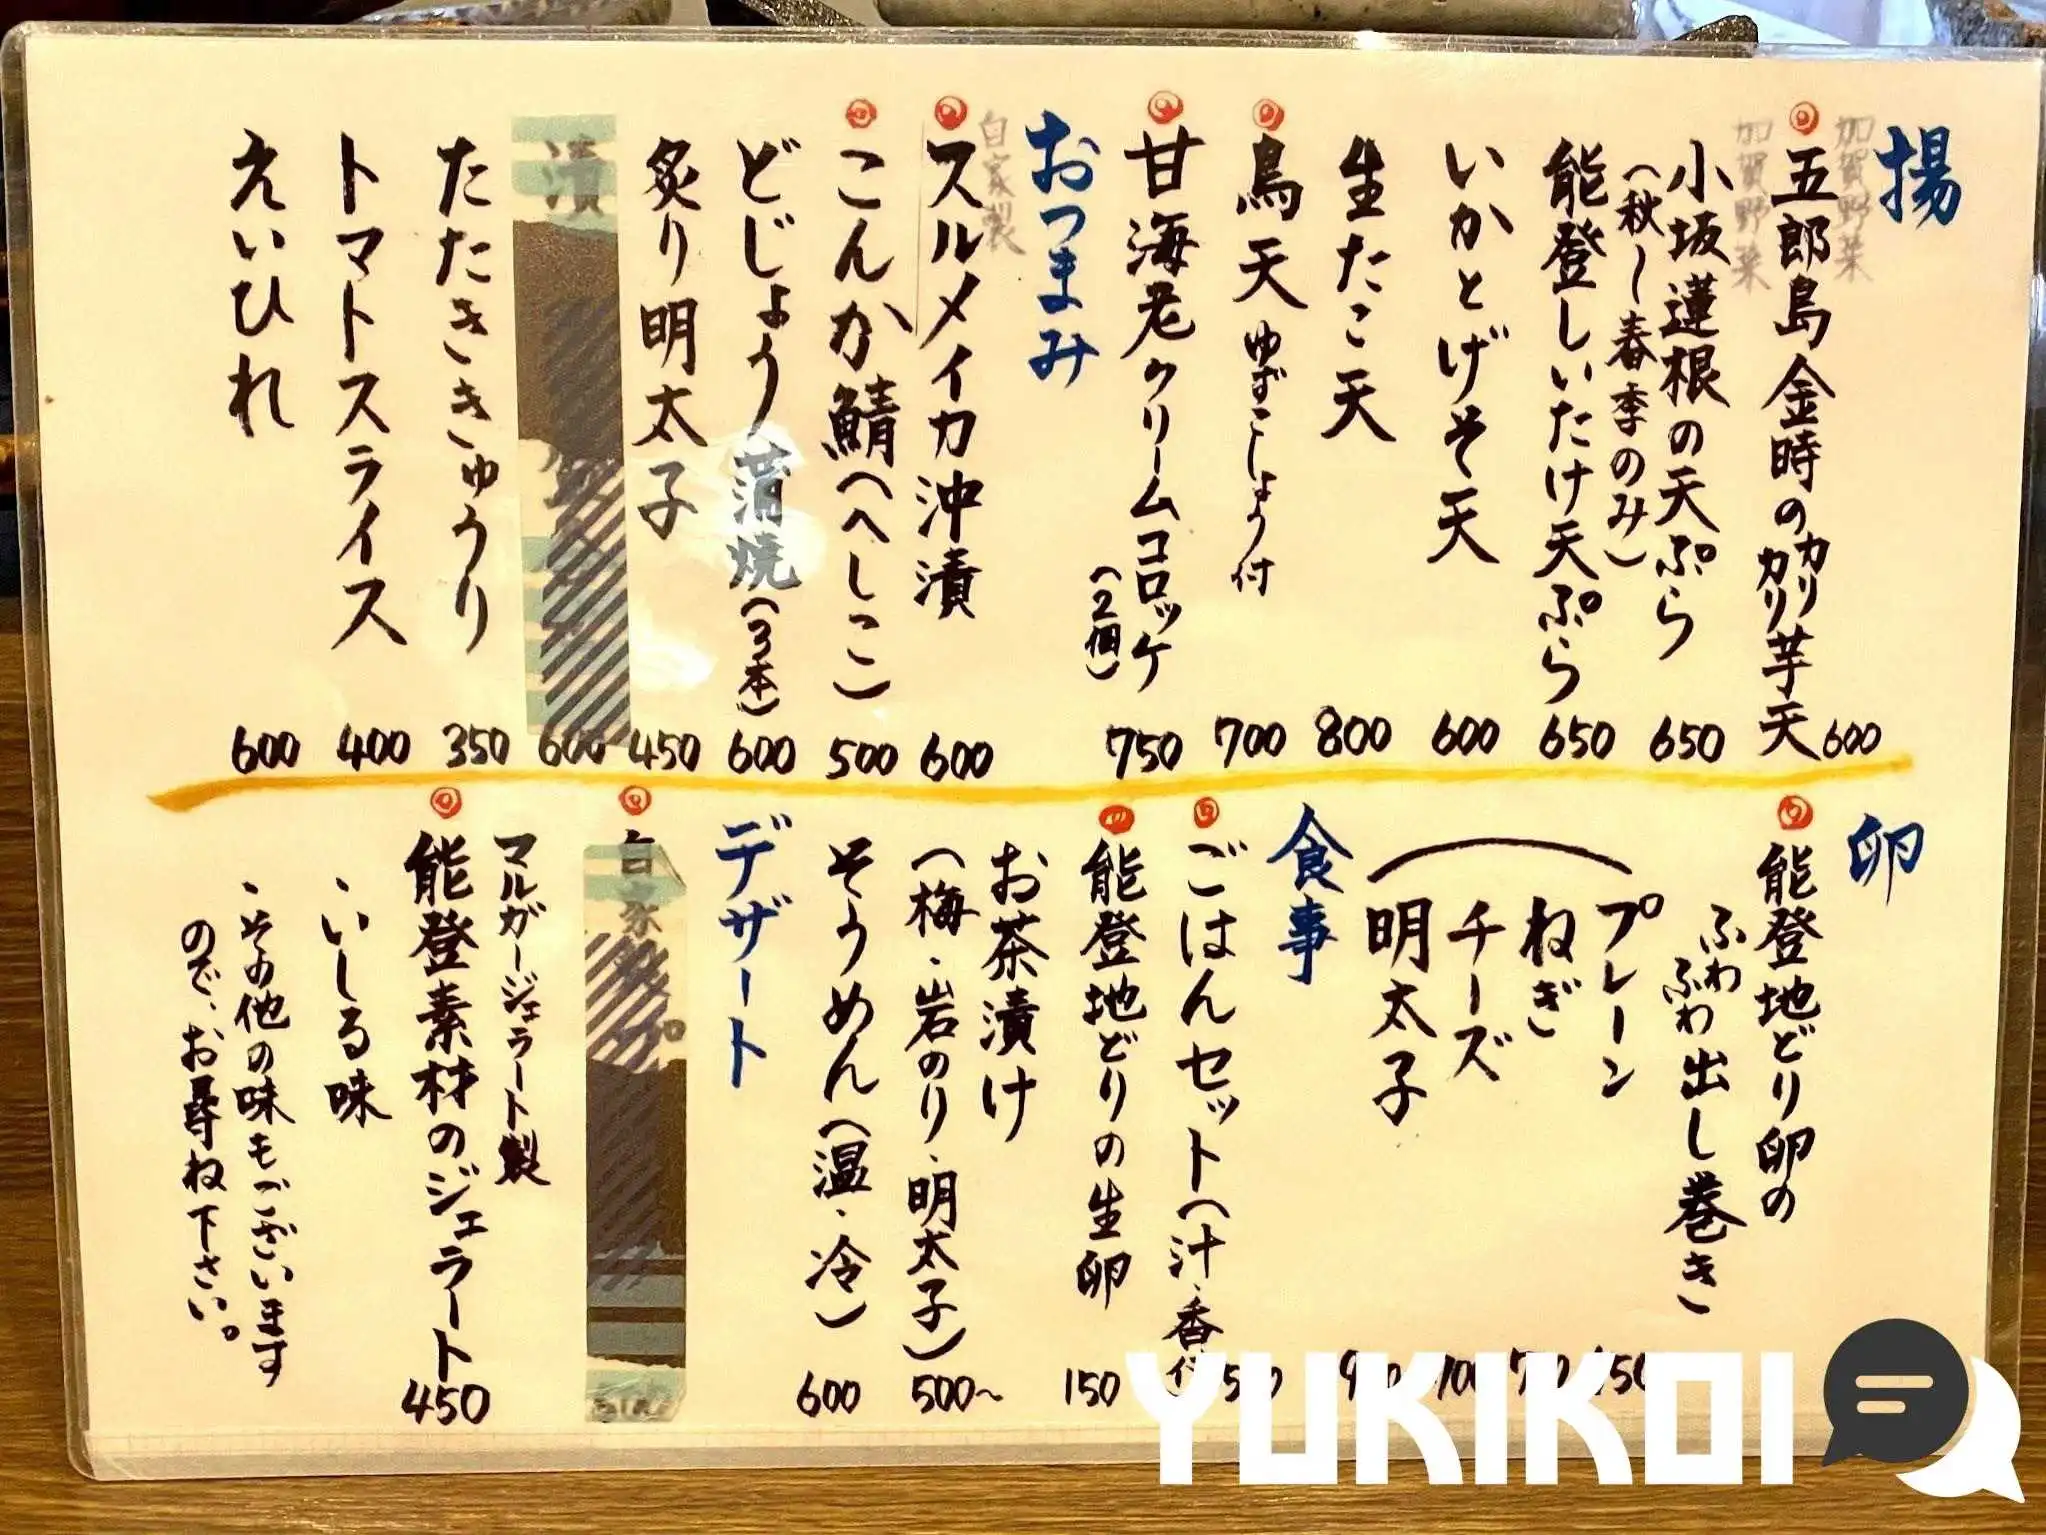 揚
加賀野菜
五郎島金時のカリカリ芋天 600
加賀野菜
小坂蓮根の天ぷら 650
(秋〜春季のみ)
能登しいたけ天ぷら 650
いかとげそ天 600
生たこ天 800
鳥天ゆずこしょう付 700
甘海老クリームコロッケ 750
(2個)
おつまみ
自家製
スルメイカ沖漬 600
こんか鯖(へしこ) 500
どじょう蒲焼(3本) 600
炙り明太子 450
漬 600
たたききゅうり 350
トマトスライス 400
えいひれ 600
卵
能登地どり卵の
ふわふわ出し巻き
プレーン
ねぎ
チーズ
明太子
食事
ごはんセット(汁・香付
能登地どりの生卵 150
お茶漬け
(梅・岩のり・明太子) 500〜
そうめん(温・冷) 600
デザート
マルガージェラート製
能登素材のジェラート 450
・いしる味
・その他の味もございます
ので、お尋ね下さい。
YUKIKOI